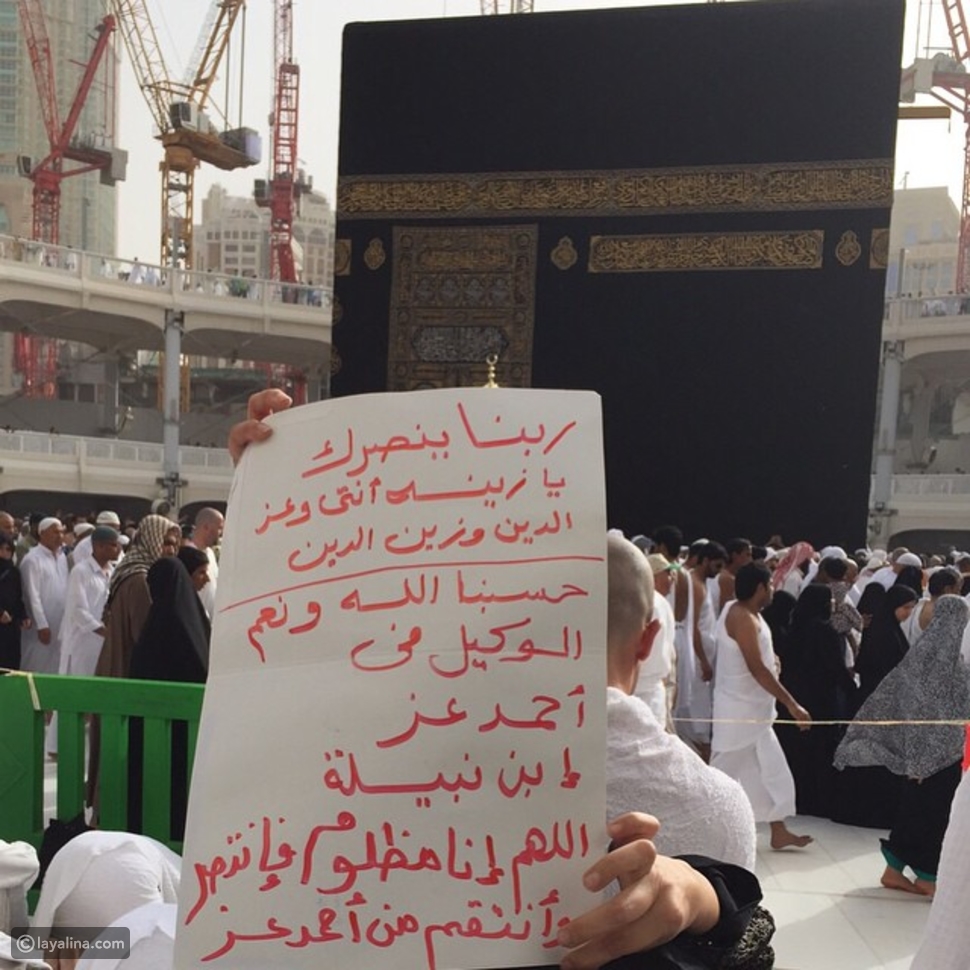 ربنا ينصرك
يا زينه أنتى وعز
الدين وزين الدين
حسبنا الله ونعم
الوكيل فى
أحمد عز
إبن نبيلة
اللهم إنا مظلوم فإنتصر
وأنتقم من أحمد عز
©layalina.com